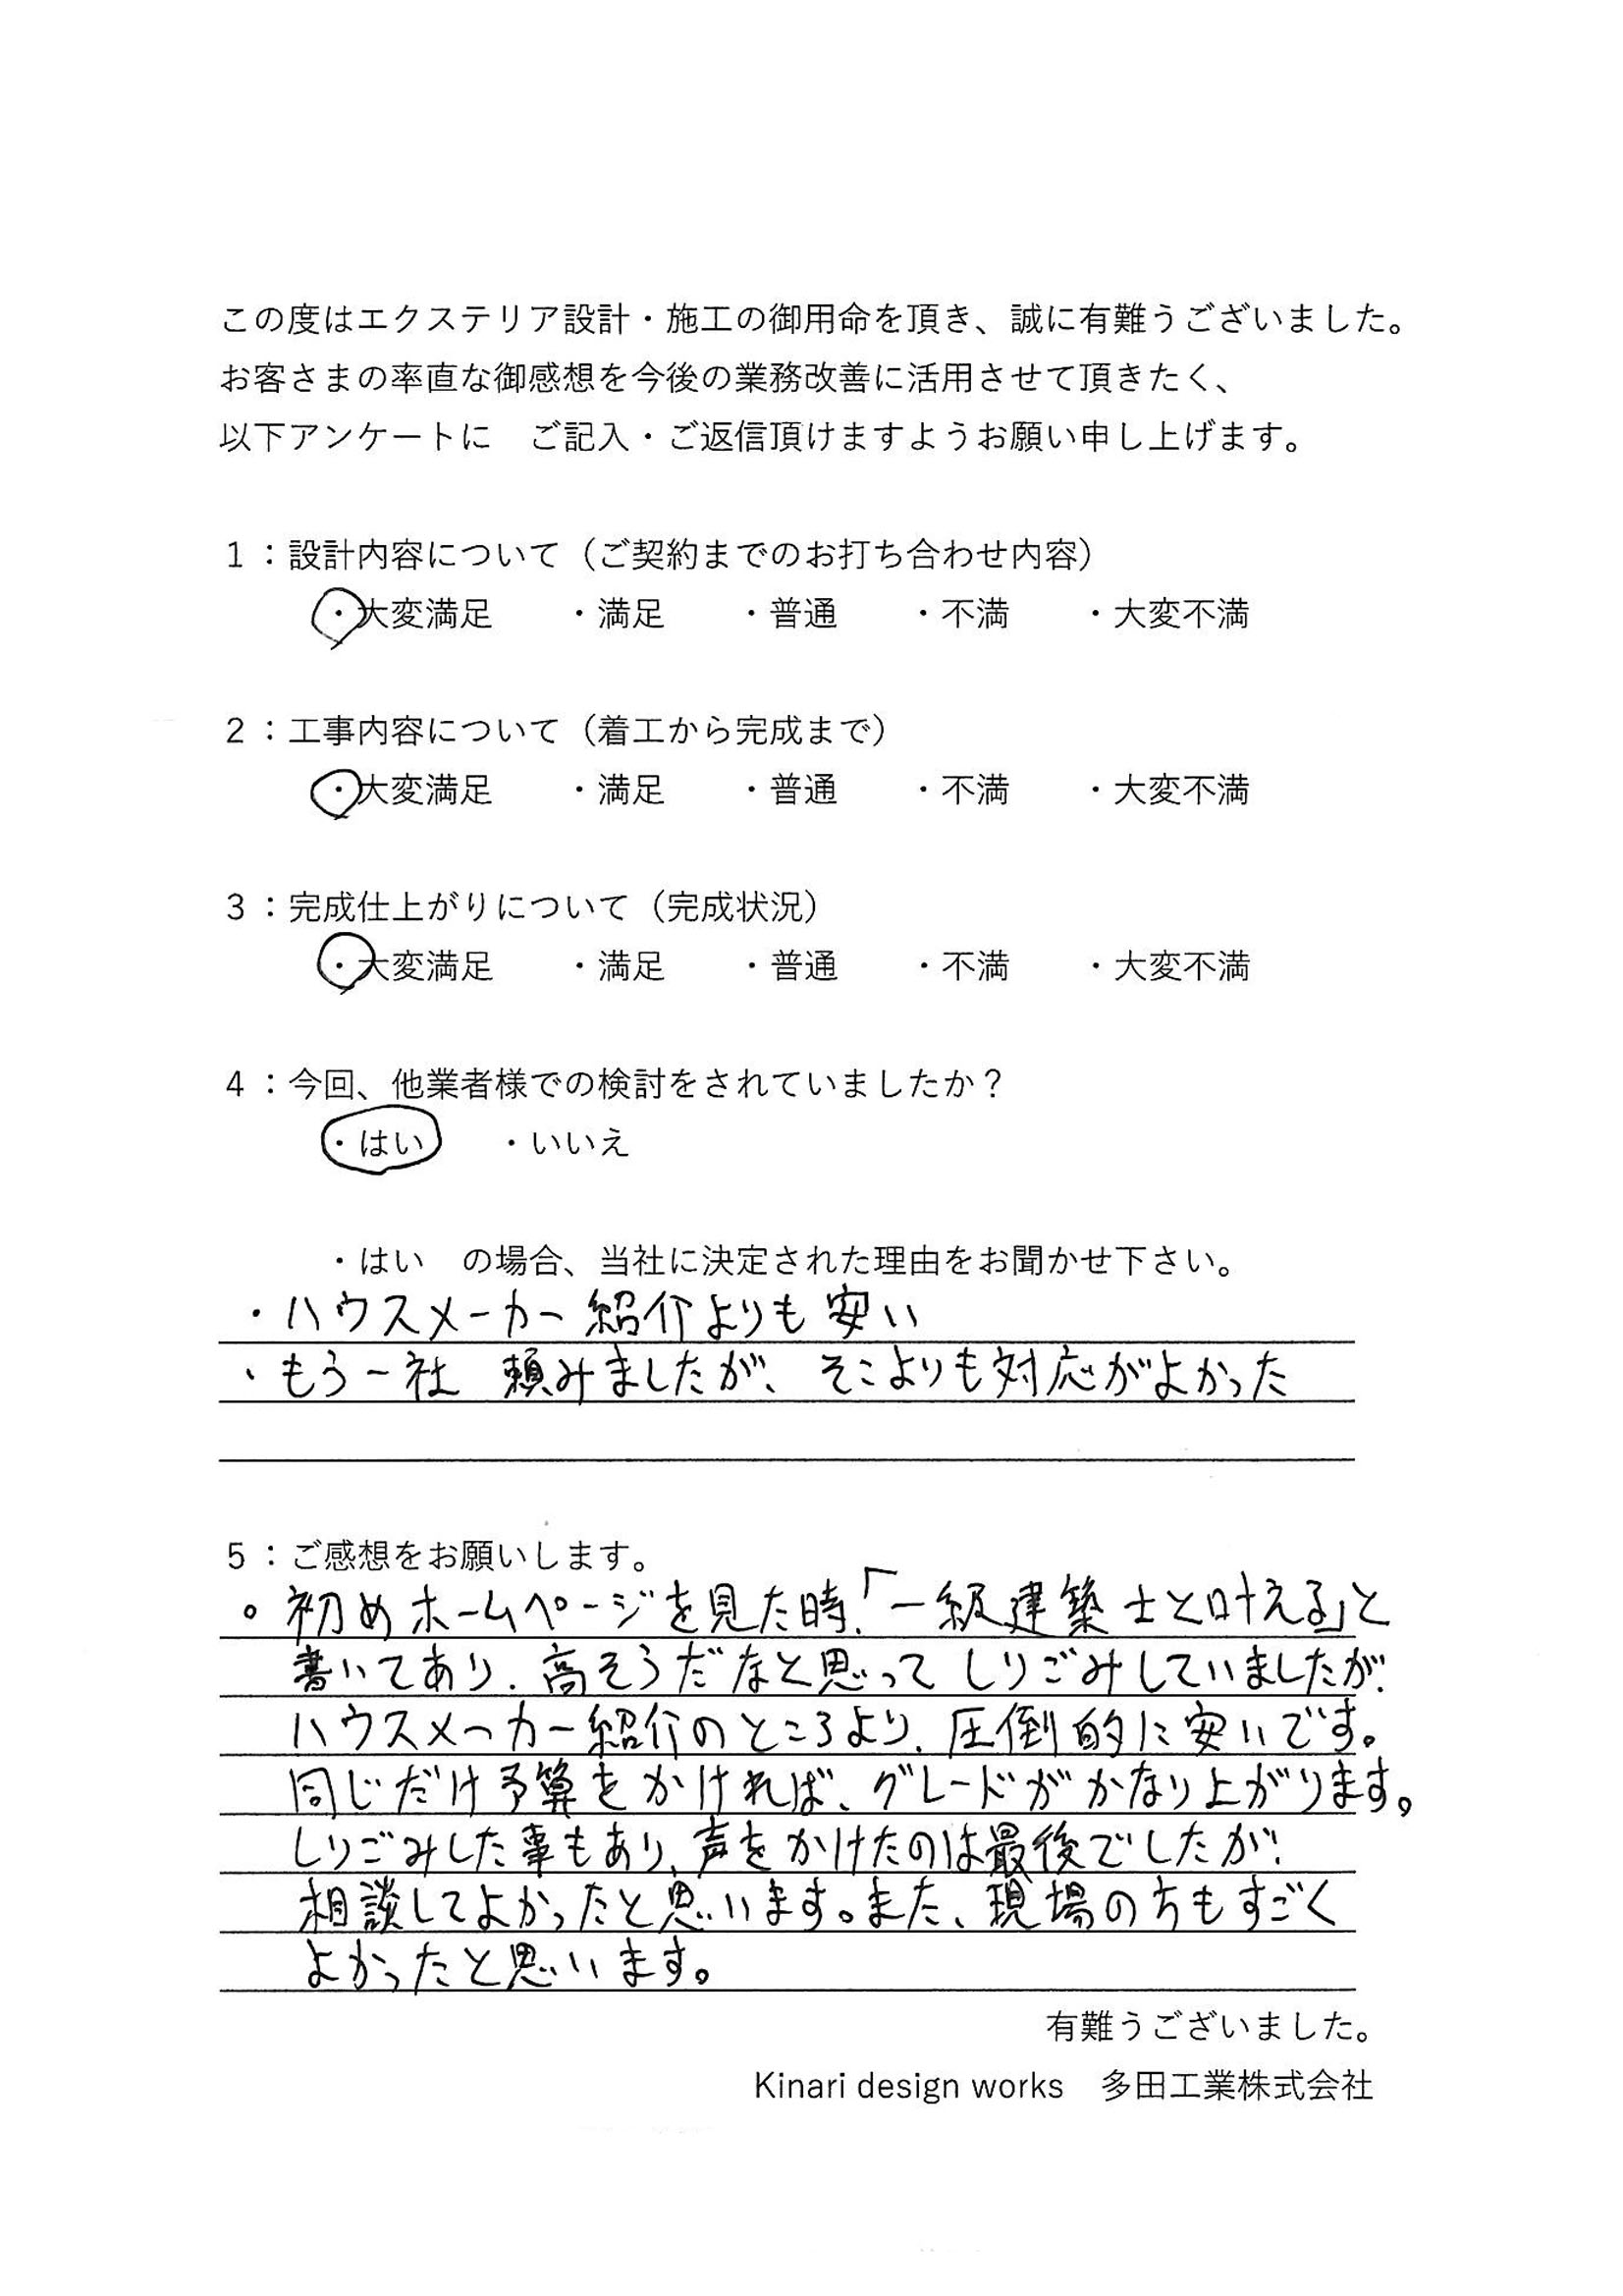 この度はエクステリア設計・施工の御用命を頂き、誠に有難うございました。
お客さまの率直な御感想を今後の業務改善に活用させて頂きたく、
以下アンケートに　ご記入・ご返信頂けますようお願い申し上げます。
1：設計内容について（ご契約までのお打ち合わせ内容）
・大変満足　・満足　・普通　・不満　・大変不満
2：工事内容について（着工から完成まで）
・大変満足　・満足　・普通　・不満　・大変不満
3：完成仕上がりについて（完成状況）
・大変満足　・満足　・普通　・不満　・大変不満
4：今回、他業者様での検討をされていましたか？
・はい　・いいえ
・はい　の場合、当社に決定された理由をお聞かせ下さい。
・ハウスメーカー紹介よりも安い
・もう一社　頼みましたが、そこよりも対応がよかった
5：ご感想をお願いします。
。初めホームページを見た時、「一級建築士と叶える」と
書いてあり、高そうだなと思って しりごみしていましたが、
ハウスメーカー紹介のところより、圧倒的に安いです。
同じだけ予算をかければ、グレードがかなり上がります。
しりごみした事もあり、声をかけたのは最後でしたが、
相談してよかったと思います。また、現場の方もすごく
よかったと思います。
有難うございました。
Kinari design works　多田工業株式会社